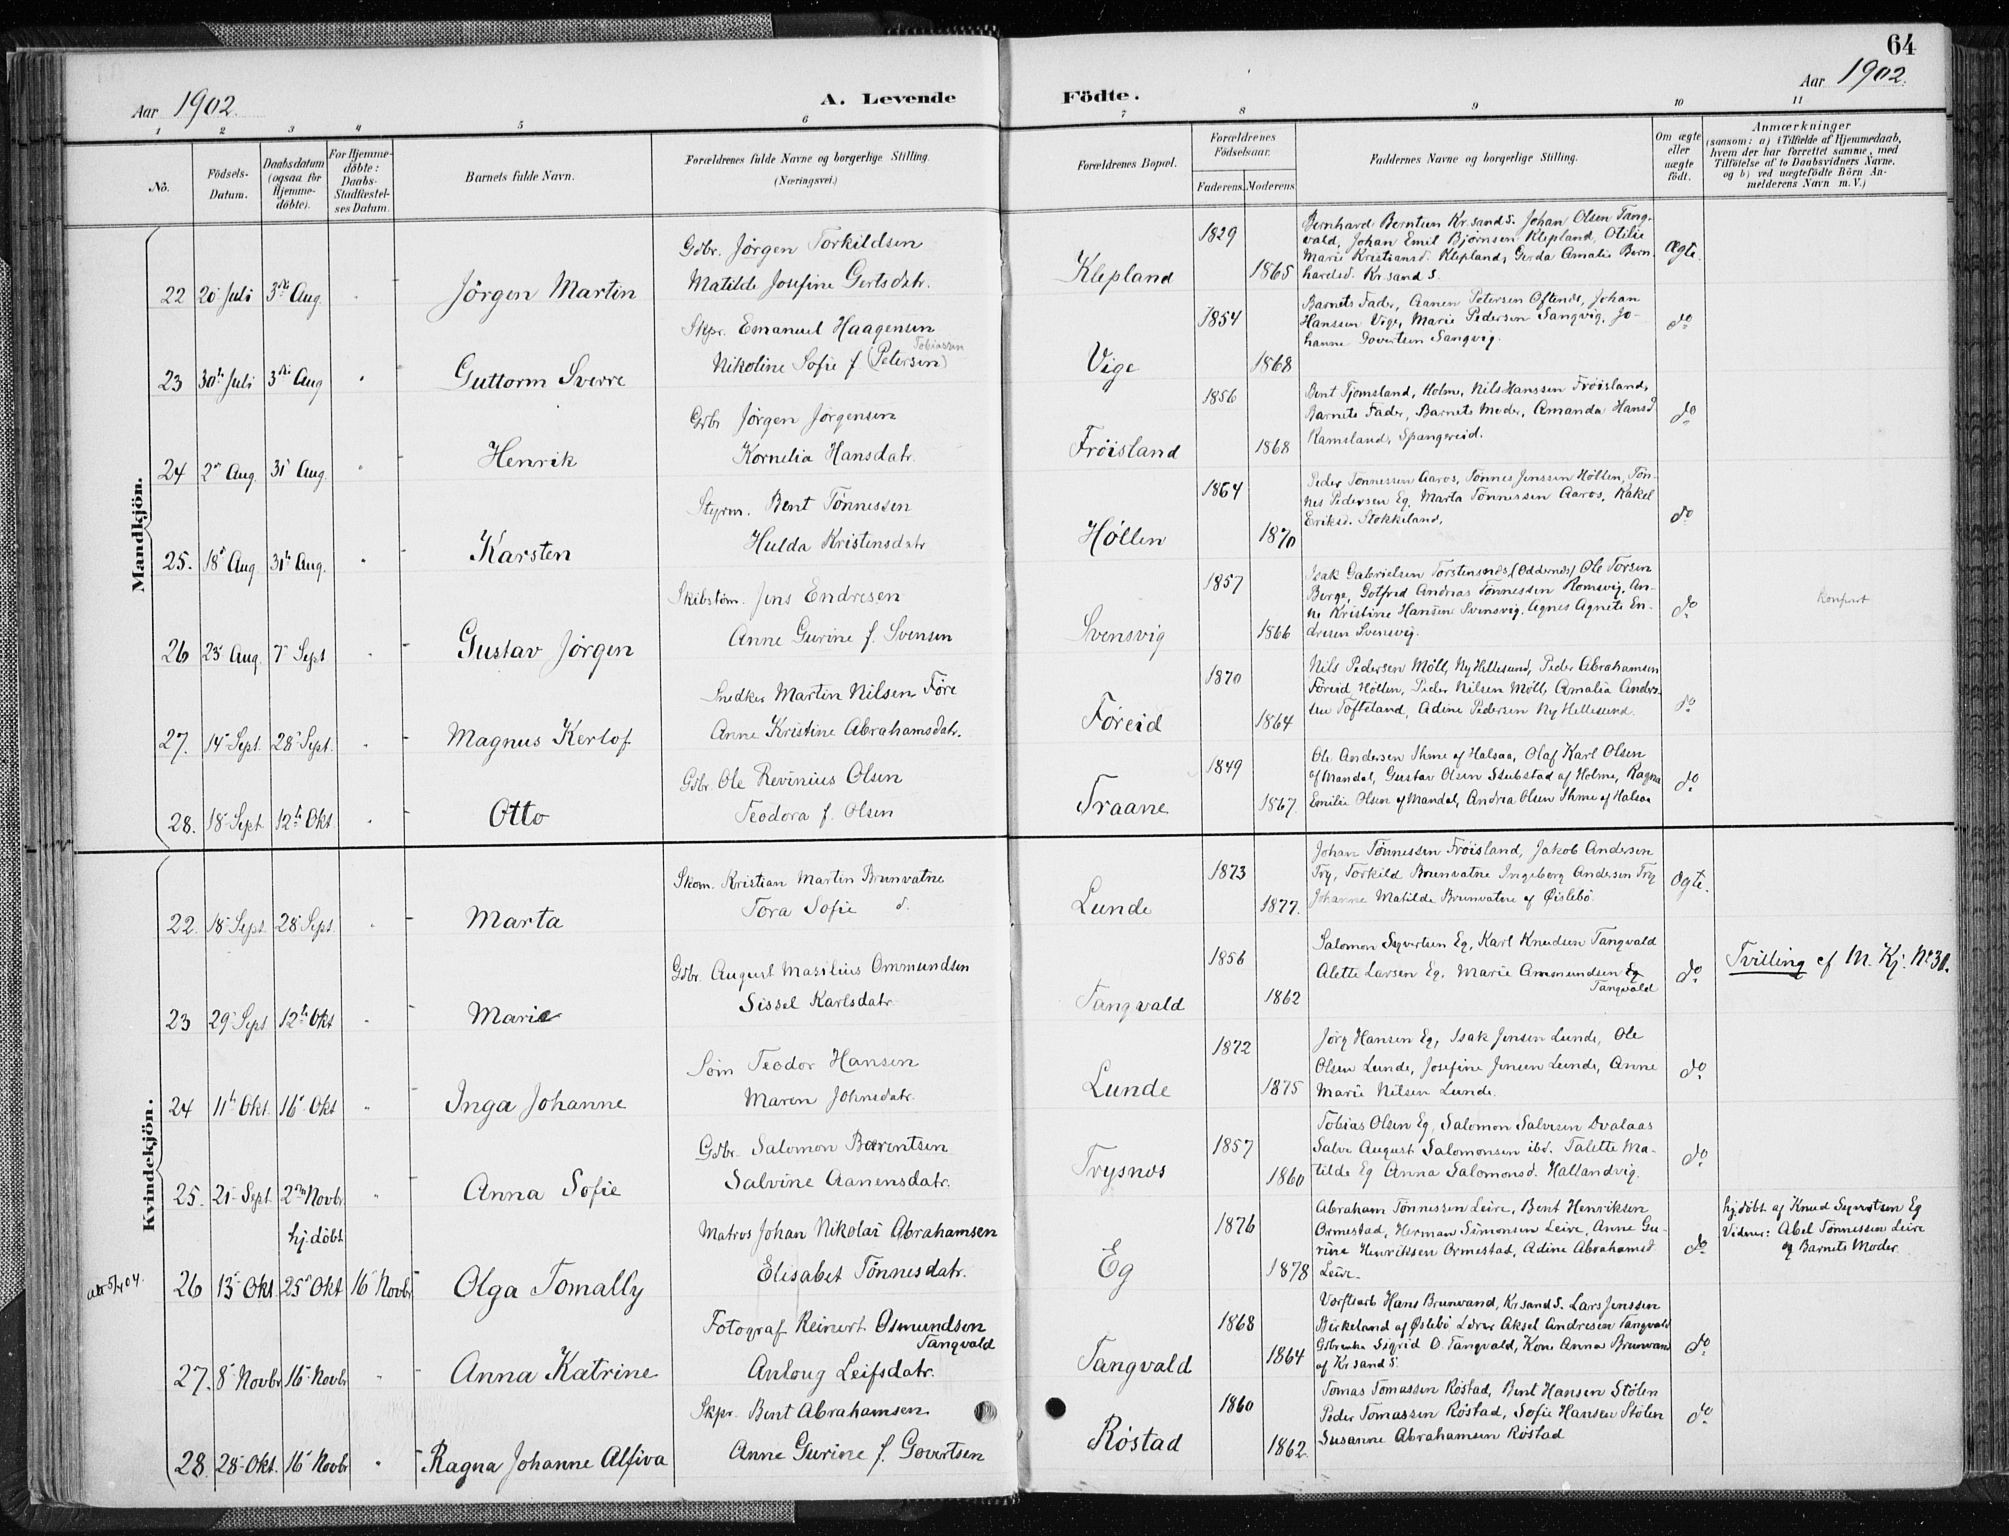 64
Aar 1902. A. Levende Födte. Aar 1902.
1 2 3 4 5 6 7 8 9 10 11
No. Födsels-Datum. Daabsdatum (ogsaa for Hjemme-döbte). For Hjemme-döbte: Daabs-Stadfæstel-ses Datum. Barnets fulde Navn. Forældrenes fulde Navne og borgerlige Stilling. (Næringsvei.) Forældrenes Bopæl. Forældrenes Födselsaar. Faderens. Moderens. Faddernes Navne og borgerlige Stilling. Om ægte eller uægte födt. Anmærkninger (saasom: a) i Tilfælde af Hjemmedaab, hvem der har forrettet samme, med Tilföielse af to Daabsvidners Navne, og b) ved uægtefödte Börn An-melderens Navn m. V.)
Mandkjön.
Gdbr. Jörgen Torkildsen
Matilde Josefine Gertsdatr.
22 20 Juli 3die Aug. Jörgen Martin Klepland 1829 1865
Bernhard Berntsen Kr.sand S. Johan Olsen Tang-
vald, Johan Emil Bjørnsen Klepland, Otilie
Marie Kristiansd. Klepland, Gerda Amalie Bern-
hardsd. Kr.sand S.
Ægte.
Skpr. Emanuel Haagensen
Tobiassen
Nikoline Sofie f. (Petersen)
23 30te Juli 3die Aug Guttorm Sverre Vige 1854 1868
Barnets Fader, Aanen Petersen Oftenes, Johan
Hanssen Vige, Marie Pedersen Sangvig, Jo-
hanne Govertsen Sangvig.
do
Gdbr Jörgen Jörgensen
Kornelia Hansdatr.
24 2n Aug. 31 Aug. Henrik Fröisland 1856 1868
Bent Tjomsland, Holme, Nils Hanssen Fröisland,
Barnets Fader, Barnets Moder, Amanda Hansd
Ramsland, Spangereid.
do
Styrm. Bent Tönnessen
Hulda Kristensdatr
25. 18 Aug 31te Aug. Karsten Höllen 1864 1870
Peder Tönnessen Aaros, Tönnes Jenssen Höllen, Tön-
nes Pedersen Eg, Marta Tönnessen Aaros, Rakel
Eriksd. Stokkeland,
do
Skibstöm. Jens Endresen
Anne Gurine f. Svensen
26 23 Aug. 7 Sept Gustav Jörgen Svensvig 1857 1866
Isak Gabrielsen Torstensnes, (Oddernes) Ole Torsen
Berge, Gotfred Andreas Tönnessen Romsvig, An-
ne Kristine Hansen Svensvig, Agnes Agnete En-
dresen Svensvig.
do
Konfirt
Snedker Martin Nilsen Före
Anne Kristine Abrahamsdatr.
27. 14 Sept. 28 Sept. Magnus Kerlof Föreid 1870 1864
Nils Pedersen Möll, Ny Hellesund, Peder Abrahamsen
Föreid Höllen, Peder Nilsen Möll, Amalia Anders-
sen Tofteland, Adine Pedersen Ny Hellesund.
do
Gdbr. Ole Revinius Olsen
Teodora f. Olsen
28. 18 Sept 12te Okt Otto Traane 1849 1867.
Ole Andersen Ihme af Halsaa, Olaf Karl Olsen
af Mandal, Gustav Olsen Stubstad af Holme, Ragna
Emilie Olsen af Mandal, Andrea Olsen Ihme af Halsaa
do
Kvindekjön.
Skom. Kristian Martin Brunvatne
Tora Sofie d.
22. 18 Sept. 28 Sept. Marta Lunde 1873 1877.
Johan Tönnessen Fröisland, Jakob Andersen
Try, Torkild Brunvatne Ingeborg Andersen Try
Johanne Matilde Brunvatne af Øislebö.
Ægte.
Gdbr. August Masilius Ommundsen
Sissel Karlsdatr
23 29 Sept 12te Okt Marie Tangvald 1856 1862
Salomon Syvertsen Eg, Karl Knudsen Tangvald
Alette Larsen Eg. Marie Ammundsen Eg
Tangvald
do
Tvilling cf M. Kj. No 31.
Söm Teodor Hansen
Maren Johnsdatr.
24 11te Okt. 16 Okt Inga Johanne Lunde 1872 1875
Jörg Hansen Eg, Isak Jensen Lunde, Ole
Olsen Lunde, Josefine Jensen Lunde, Anne
Marie Nilsen Lunde.
do
Gdbr. Salomon Bærentsen
Salvine Aanensdatr.
25. 21 Sept. 2den Novbr Anna Sofie Trysnes 1857 1860
Tobias Olsen Eg, Salomon Salvesen Dvalaas
Salve August Salomonsen ibd. Talette Ma-
tilde Eg Anna Salomonsd. Hallandvig.
do
hj. döbt
Matros Johan Nikolai Abrahamsen
Elisabet Tönnesdatr.
26 13 Okt. 25 Okt 16 Novbr Olga Tomally Eg 1876 1878
Abraham Tönnessen Leire, Bent Henriksen
Ormestad, Herman Simonsen Leire, Anne Gu-
rine Henriksen Ormestad, Adine Abrahamsd
Leire.
do
hj. döbt af Knud Syvertsen Eg
Vidner: Abel Tönnessen Leire
og Barnets Moder.
Fotograf Reinert Osmundsen
Tangvald
Anlaug Leifsdatr.
27. 8 Novbr 16 Novbr Anna Katrine Tangvald 1868 1864
Værftsarb Hans Brunvand, Kr.sand S. Lars Jenssen
Birkeland af Øslebö Lærer Aksel Andresen Tangvald
Gdbrenke Sigrid O. Tangvald, Kone Anna Brunvand
af Kr.sand S.
do
Skpr. Bent Abrahamsen
Anne Gurine f. Govertsen
28. 28 Okt. 16 Novbr Ragna Johanne Alfiva Röstad 1860 1862.
Tomas Tomassen Röstad, Bent Hansen Stölen
Peder Tomassen Röstad, Sofie Hansen Stölen
Susanne Abrahamsen Röstad
do